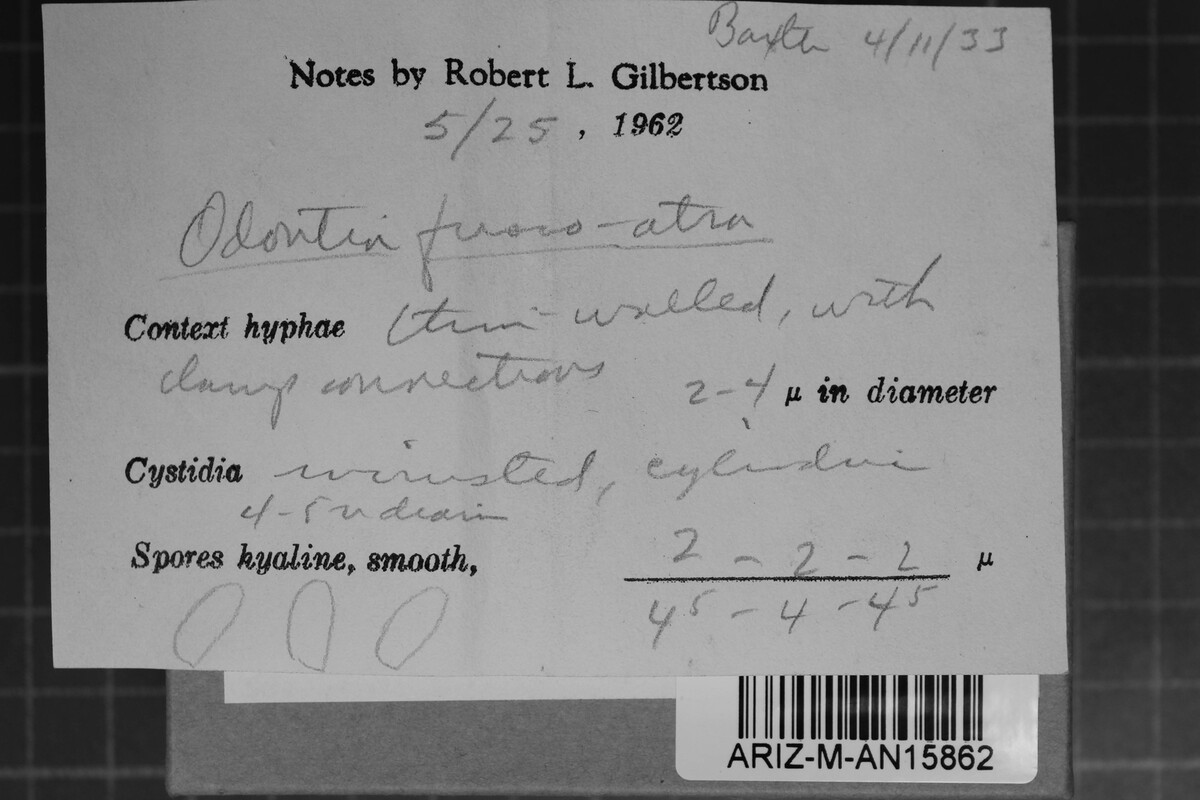 Baxter 4/11/33
Notes by Robert L. Gilbertson
5/25, 1962
Odontia fusco-atra
Context hyphae thin-walled, with
clamp connections 2-4 μ in diameter
Cystidia incrusted, cylindric
4-5 u diam
Spores hyaline, smooth, 2 - 2 - 2 μ
4⁵ - 4 - 4⁵
ARIZ-M-AN15862